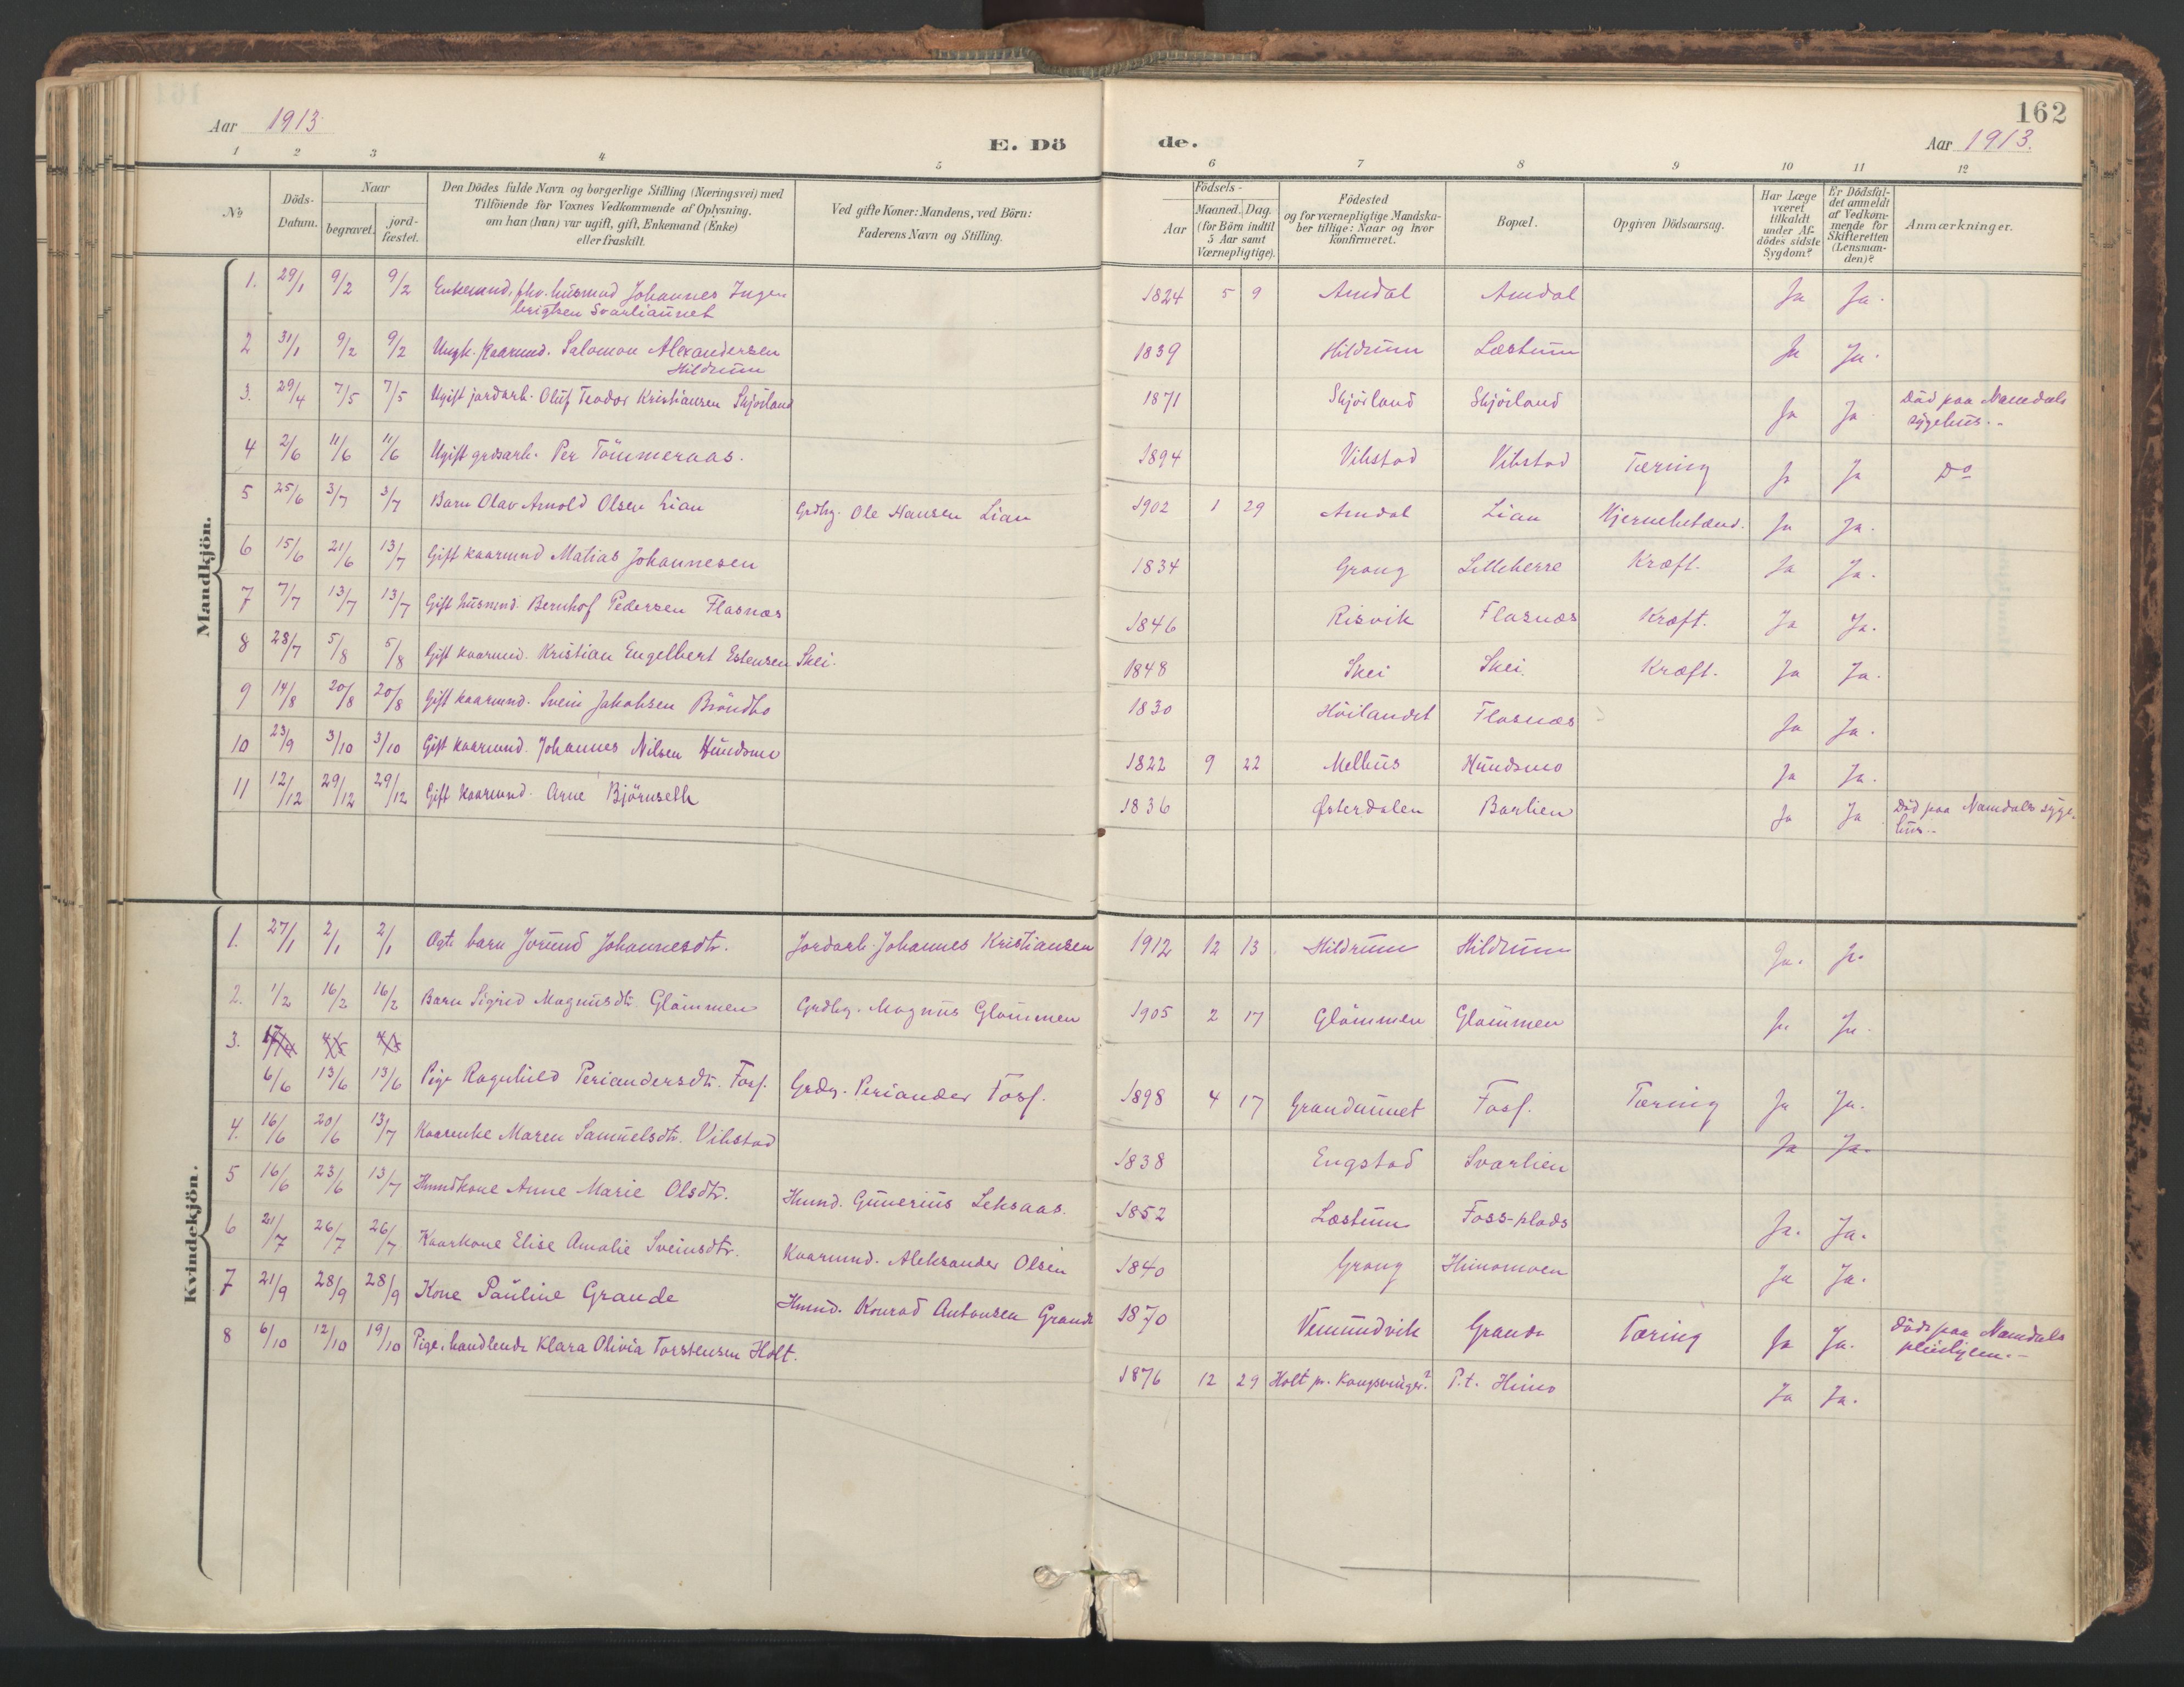 162
Aar 1913
E. Döde.
Aar 1913.
1 2 3 4 5 6 7 8 9 10 11 12
No
Döds-Datum.
Naar
begravet.
jord-fæstet.
Den Dödes fulde Navn og borgerlige Stilling (Næringsvei) med
Tilföiende for Voxnes Vedkommende af Oplysning,
om han (hun) var ugift, gift, Enkemand (Enke)
eller fraskilt.
Ved gifte Koner: Mandens, ved Börn:
Faderens Navn og Stilling.
Födsels-
Aar
Maaned. Dag.
(for Börn indtil
5 Aar samt
Værnepligtige).
Födested
og for værnepligtige Mandska-
ber tillige: Naar og hvor
konfirmeret.
Bopæl.
Opgiven Dödsaarsag.
Har Læge
været
tilkaldt
under Af-
dödes sidste
Sygdom?
Er Dödsfal-
det anmeldt
af Vedkom-
mende for
Skifteretten
(Lensman-
den)?
Anmærkninger.
Mandkjön.
1. 29/1 9/2 9/2 Enkemand, fhv. husmnd Johannes Inge-
brigtsen Svarliaunet 1824 5 9 Amdal Amdal Ja Ja.
2 31/1 9/2 9/2 Ungk. kaarmnd. Salomon Alexandersen
Hildrum 1839 Hildrum Læstum Ja Ja.
3. 29/4 7/5 7/5 Ugift jordarb. Oluf Teodor Kristiansen Skjörland 1871 Skjörland Skjörland Ja Ja Död paa Namdals
sygehus.-
4 2/6 11/6 11/6 Ugift grdsarb. Per Tömmeraas. 1894 Vibstad Vibstad Tæring Ja Ja Do
5 25/6 3/7 3/7 Barn Olav Arnold Olsen Lian Grdbg. Ole Hansen Lian 1902 1 29 Amdal Lian Hjernebetænd. Ja Ja.
6 15/6 21/6 13/7 Gift kaarmnd Matias Johannesen 1834 Grong Lilleherre Kræft. Ja Ja.
7 7/7 13/7 13/7 Gift husmnd. Bernhof Pedersen Flasnæs 1846 Risvik Flasnæs Kræft. Ja Ja.
8 28/7 5/8 5/8 Gift kaarmnd. Kristian Engelbert Estensen Skei. 1848 Skei Skei. Kræft. Ja Ja.
9 14/8 20/8 20/8 Gift kaarmnd. Svein Jakobsen Bröndbo 1830 Höilandet Flasnæs Ja Ja.
10 23/9 3/10 3/10 Gift kaarmnd. Johannes Nilsen Hundsmo 1822 9 22 Melhus Hundsmo Ja Ja.
11 12/12 29/12 29/12 Gift kaarmnd. Arne Björnseth 1836 Østerdalen Barlien Ja Ja Död paa Namdals syge-
hus.-
Kvindekjön.
1. 27/1 2/1 2/1 Ægte barn Jorund Johannesdtr. Jordarb. Johannes Kristiansen 1912 12 13. Hildrum Hildrum Ja. Ja.
2. 1/2 16/2 16/2 Barn Sigrid Magnusdtr. Glömmen Grdbg. Magnus Glömmen 1905 2 17 Glömmen Glömmen Ja Ja.
3.
6/6 13/6 13/6 Pige Ragnhild Periandersdtr. Fosf. Grdbg. Periander Fosf. 1898 4 17 Grandaunet Fosf. Tæring Ja Ja.
4. 16/6 20/6 13/7 Kaarenke Maren Samuelsdtr. Vibstad 1838 Engstad Svarlien Ja Ja.
5 16/6 23/6 13/7 Hmndkone Anne Marie Olsdtr. Hmnd. Gunerius Leksaas. 1852 Læstum Foss-plads Ja. Ja.
6 21/7 26/7 26/7 Kaarkone Elise Amalie Sveinsdtr. Kaarmnd. Aleksander Olsen 1840 Grong Himomoen Ja Ja.
7 21/9 28/9 28/9 Kone Pauline Grande Hmnd. Konrad Antonsen Grande 1870 Vemundvik Grande Tæring Ja Ja. Död paa Namdals
pleiehjem.-
8 6/10 12/10 19/10 Pige, handlende Klara Olivia Torstensen Holt. 1876 12 29 Holt pr. Kongsvinger? P.t. Himo Ja Ja.